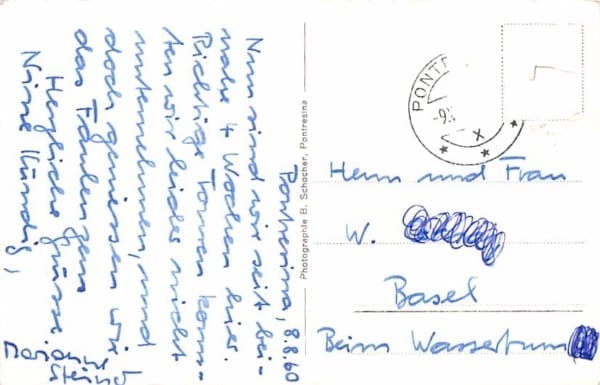 Pontresina, 8.8.60
Nun sind wir seit bei-
nahe 4 Wochen hier.
Richtige Touren konn-
ten wir leider nicht
unternehmen, und
doch geniessen wir
das Faulenzen
Herzliche Grüsse
Photographie B. Schocher, Pontresina
PONTR
Herrn und Frau
W.
Basel
Beim Wasserturm